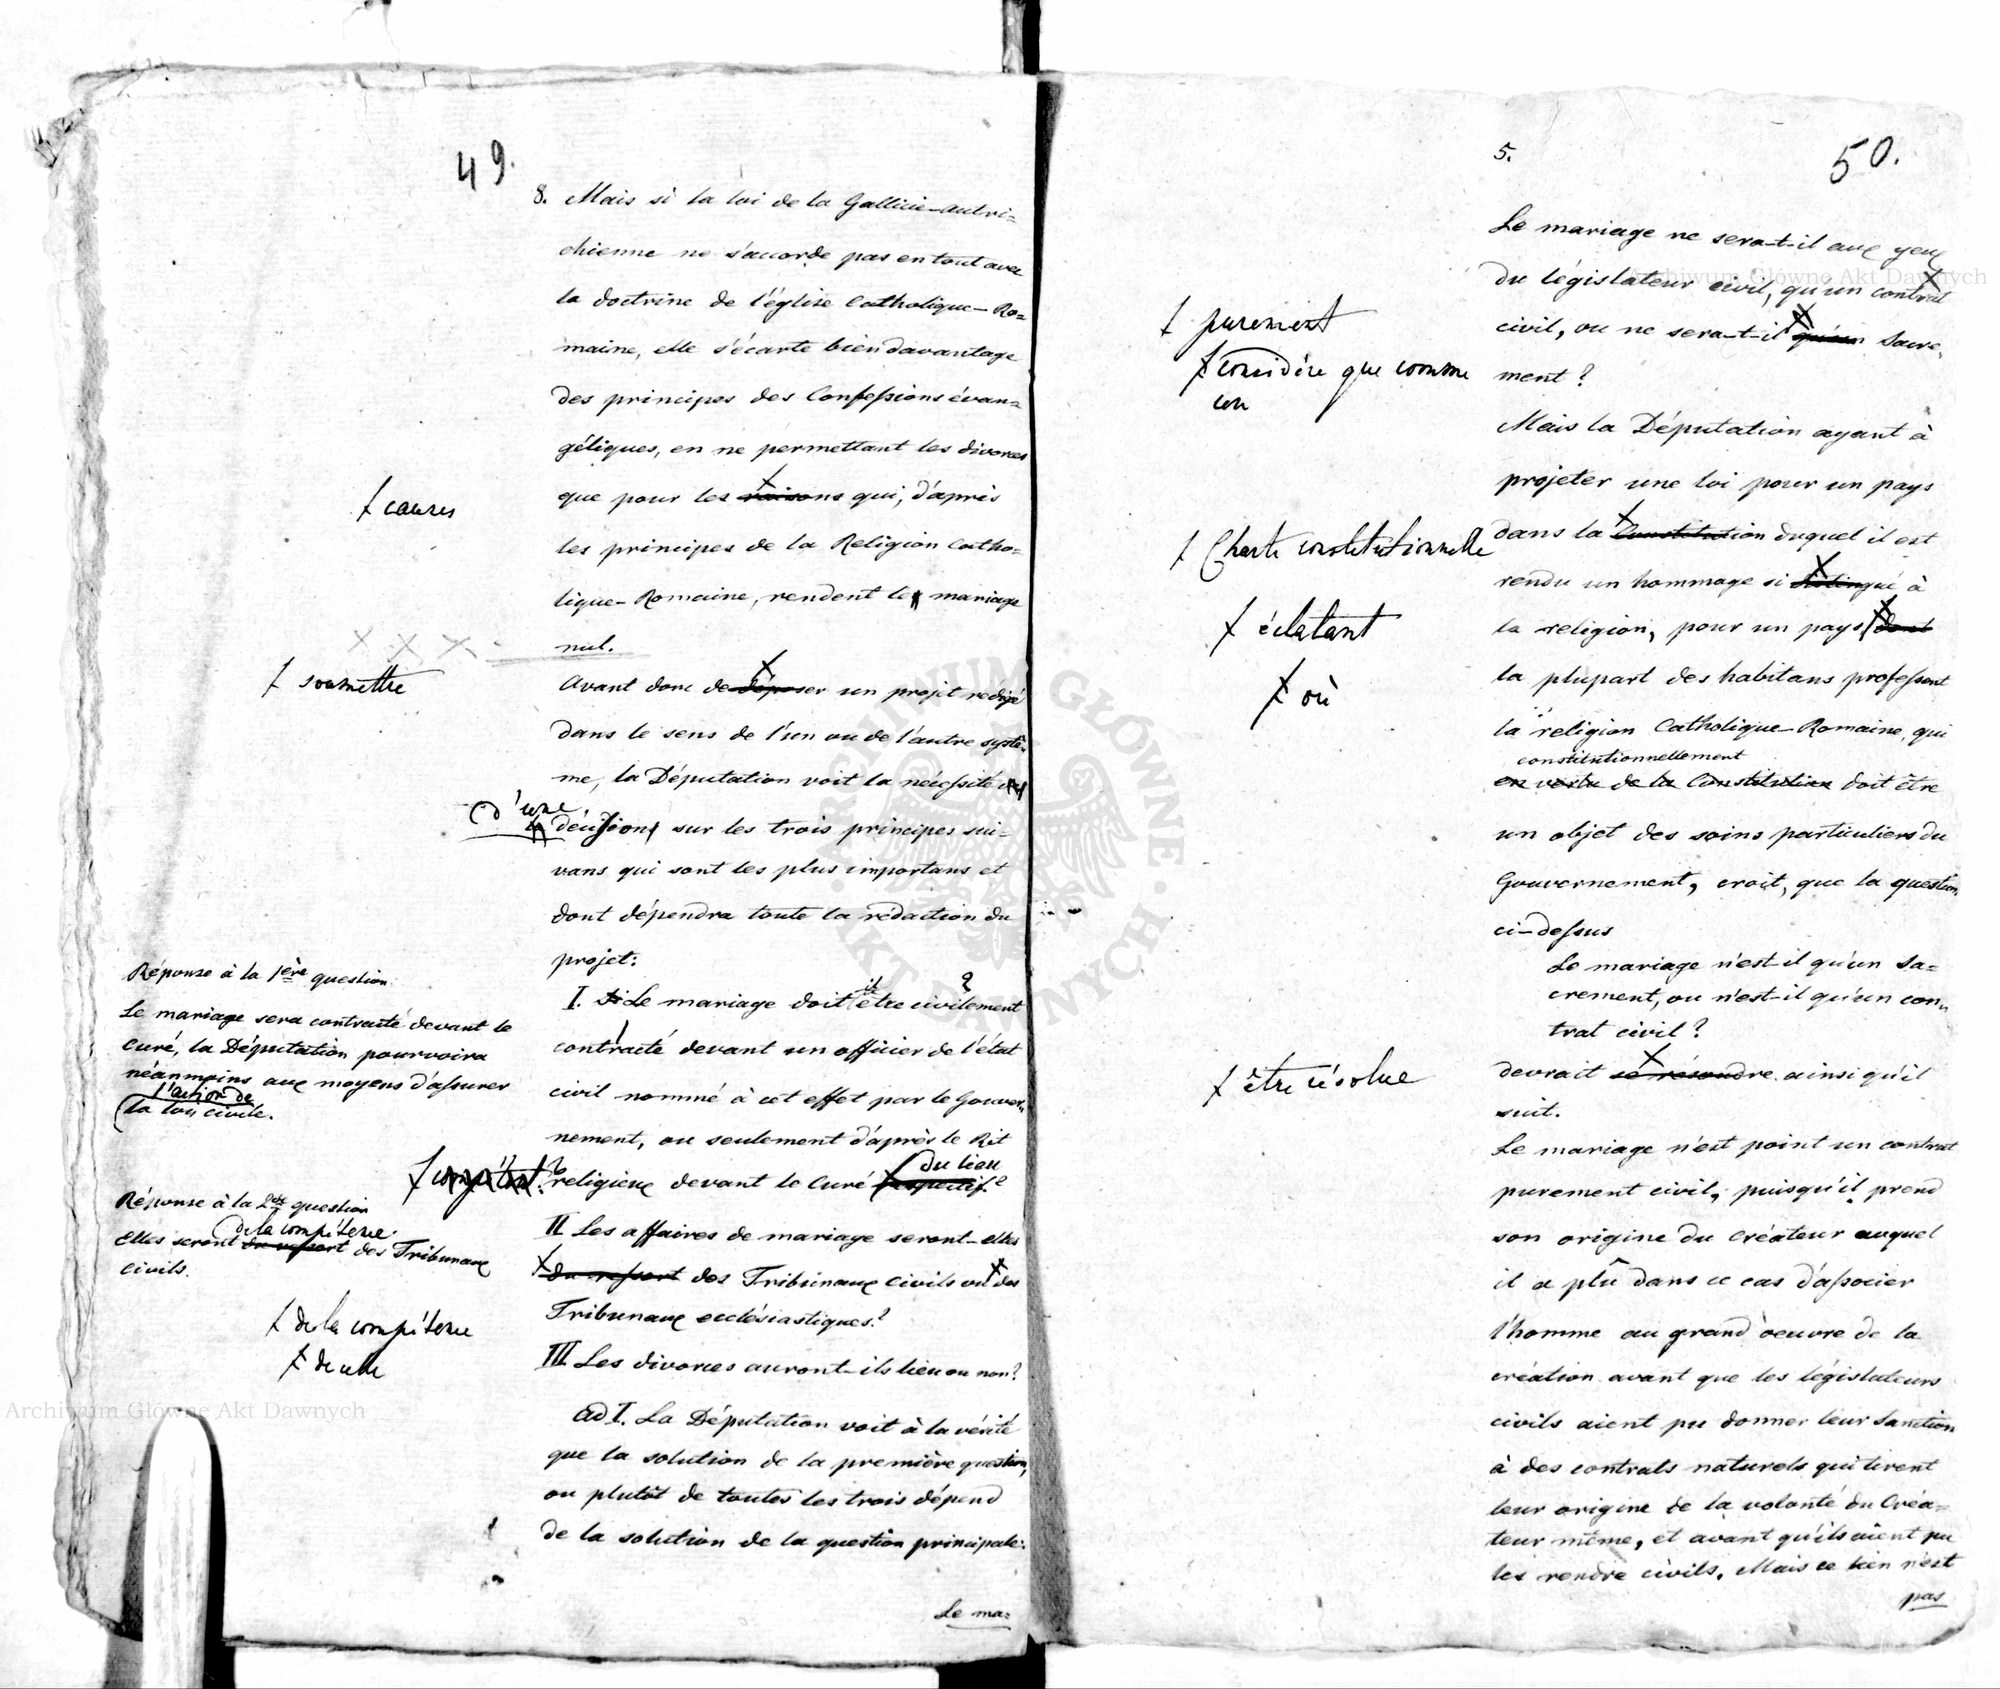 49.
8. Mais si la loi de la Gallicie-autri=
chienne ne s'accorde pas en tout avec
la doctrine de l'église Catholique-Ro=
maine, elle s'écarte bien davantage
des principes des Confessions évan=
géliques, en ne permettant les divorces
que pour les raisons qui, d'après
ɫ causes
les principes de la Religion Catho=
lique-Romaine, rendent le mariage
nul.
Avant donc de déposer un projet rédigé
ɫ soumettre
dans le sens de l'un ou de l'autre systê=
me, la Députation voit la nécessité
d'une
décision sur les trois principes sui=
vans qui sont les plus importans et
dont dépendra toute la rédaction du
projet:
I. Le mariage doit il être civilement ?
contracté devant un officier de l'état
civil nommé à cet effet par le Gouver=
nement, ou seulement d'après le Rit
religieux devant le Curé respectif? du lieu
ɫ compétent?
II Les affaires de mariage seront-elles
du ressort des Tribunaux civils ou des
Tribunaux ecclésiastiques?
ɫ de la compétence
ɫ de celle
III Les divorces auront-ils lieu ou non?
ad I. La Députation voit à la vérité
que la solution de la première question,
ou plutôt de toutes les trois dépend
de la solution de la question principale:
Le ma=
Réponse à la 1ère question:
Le mariage sera contracté devant le
Curé, la Députation pourvoira
néanmoins aux moyens d'assurer
l'action de
la loi civile.
Réponse à la 2de question
de la compétence
Elles seront du ressort des Tribunaux
civils.
5.
50.
Le mariage ne sera-t-il aux yeux
du législateur civil, qu'un contrat
civil, ou ne sera-t-il qu'un Sacre=
ment?
ɫ purement
ɫ considéré que comme
un
Mais la Députation ayant à
projeter une loi pour un pays
dans la Constitution duquel il est
ɫ Charte constitutionnelle
rendu un hommage si distingué à
ɫ éclatant
la religion, pour un pays dont
ɫ où
la plupart des habitans professent
la religion Catholique-Romaine, qui
constitutionnellement
en vertu de la Constitution doit être
un objet des soins particuliers du
Gouvernement, croit, que la question
ci-dessus
Le mariage n'est-il qu'un Sa=
crement, ou n'est-il qu'un con=
trat civil?
devrait se résoudre ainsi qu'il
ɫ être résolue
suit.
Le mariage n'est point un contrat
purement civil, puisqu'il prend
son origine du Créateur auquel
il a plû dans ce cas d'associer
l'homme au grand oeuvre de la
création avant que les législateurs
civils aient pu donner leur Sanction
à des contrats naturels qui tirent
leur origine de la volonté du Créa=
teur même, et avant qu'ils aient pu
les rendre civils. Mais ce lien n'est
pas
Archiwum Główne Akt Dawnych
Archiwum Główne Akt Dawnych
ARCHIWUM GŁÓWNE · AKT DAWNYCH ·